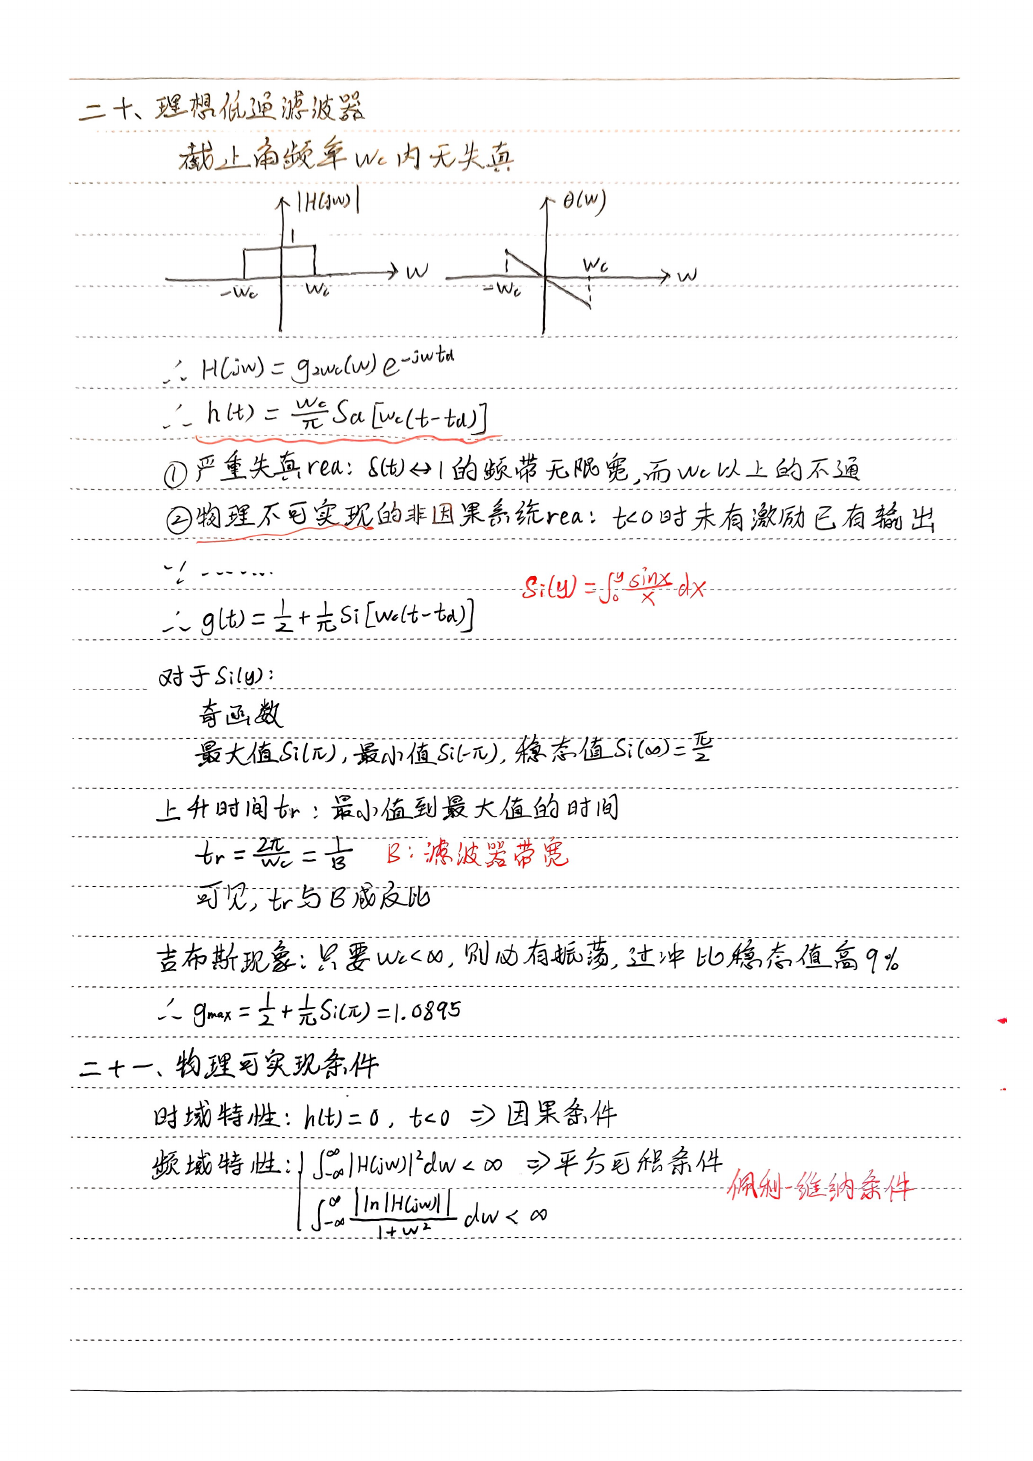 二十、理想低通滤波器
截止角频率Wc内无失真
|H(jw)|
1
-Wc Wc W
θ(w)
-Wc Wc W
∴ H(jw) = g2wc(w) e^-jwtd
∴ h(t) = Wc/π Sa[Wc(t-td)]
①严重失真rea: δ(t)↔1的频带无限宽,而Wc以上的不通
②物理不可实现的非因果系统rea: t<0时未有激励已有输出
∵ .......
Si(y) = ∫₀^y sinx/x dx
∴ g(t) = 1/2 + 1/π Si[Wc(t-td)]
对于Si(y):
奇函数
最大值Si(π), 最小值Si(-π), 稳态值Si(∞) = π/2
上升时间tr: 最小值到最大值的时间
tr = 2π/Wc = 1/B B: 滤波器带宽
可见, tr与B成反比
吉布斯现象: 只要Wc<∞, 则必有振荡, 过冲比稳态值高9%
∴ gmax = 1/2 + 1/π Si(π) = 1.0895
二十一、物理可实现条件
时域特性: h(t)=0, t<0 ⇒ 因果条件
频域特性: ∫_-∞^∞ |H(jw)|² dw < ∞ ⇒ 平方可积条件
佩利-维纳条件
∫_-∞^∞ |ln|H(jw)||/1+w² dw < ∞